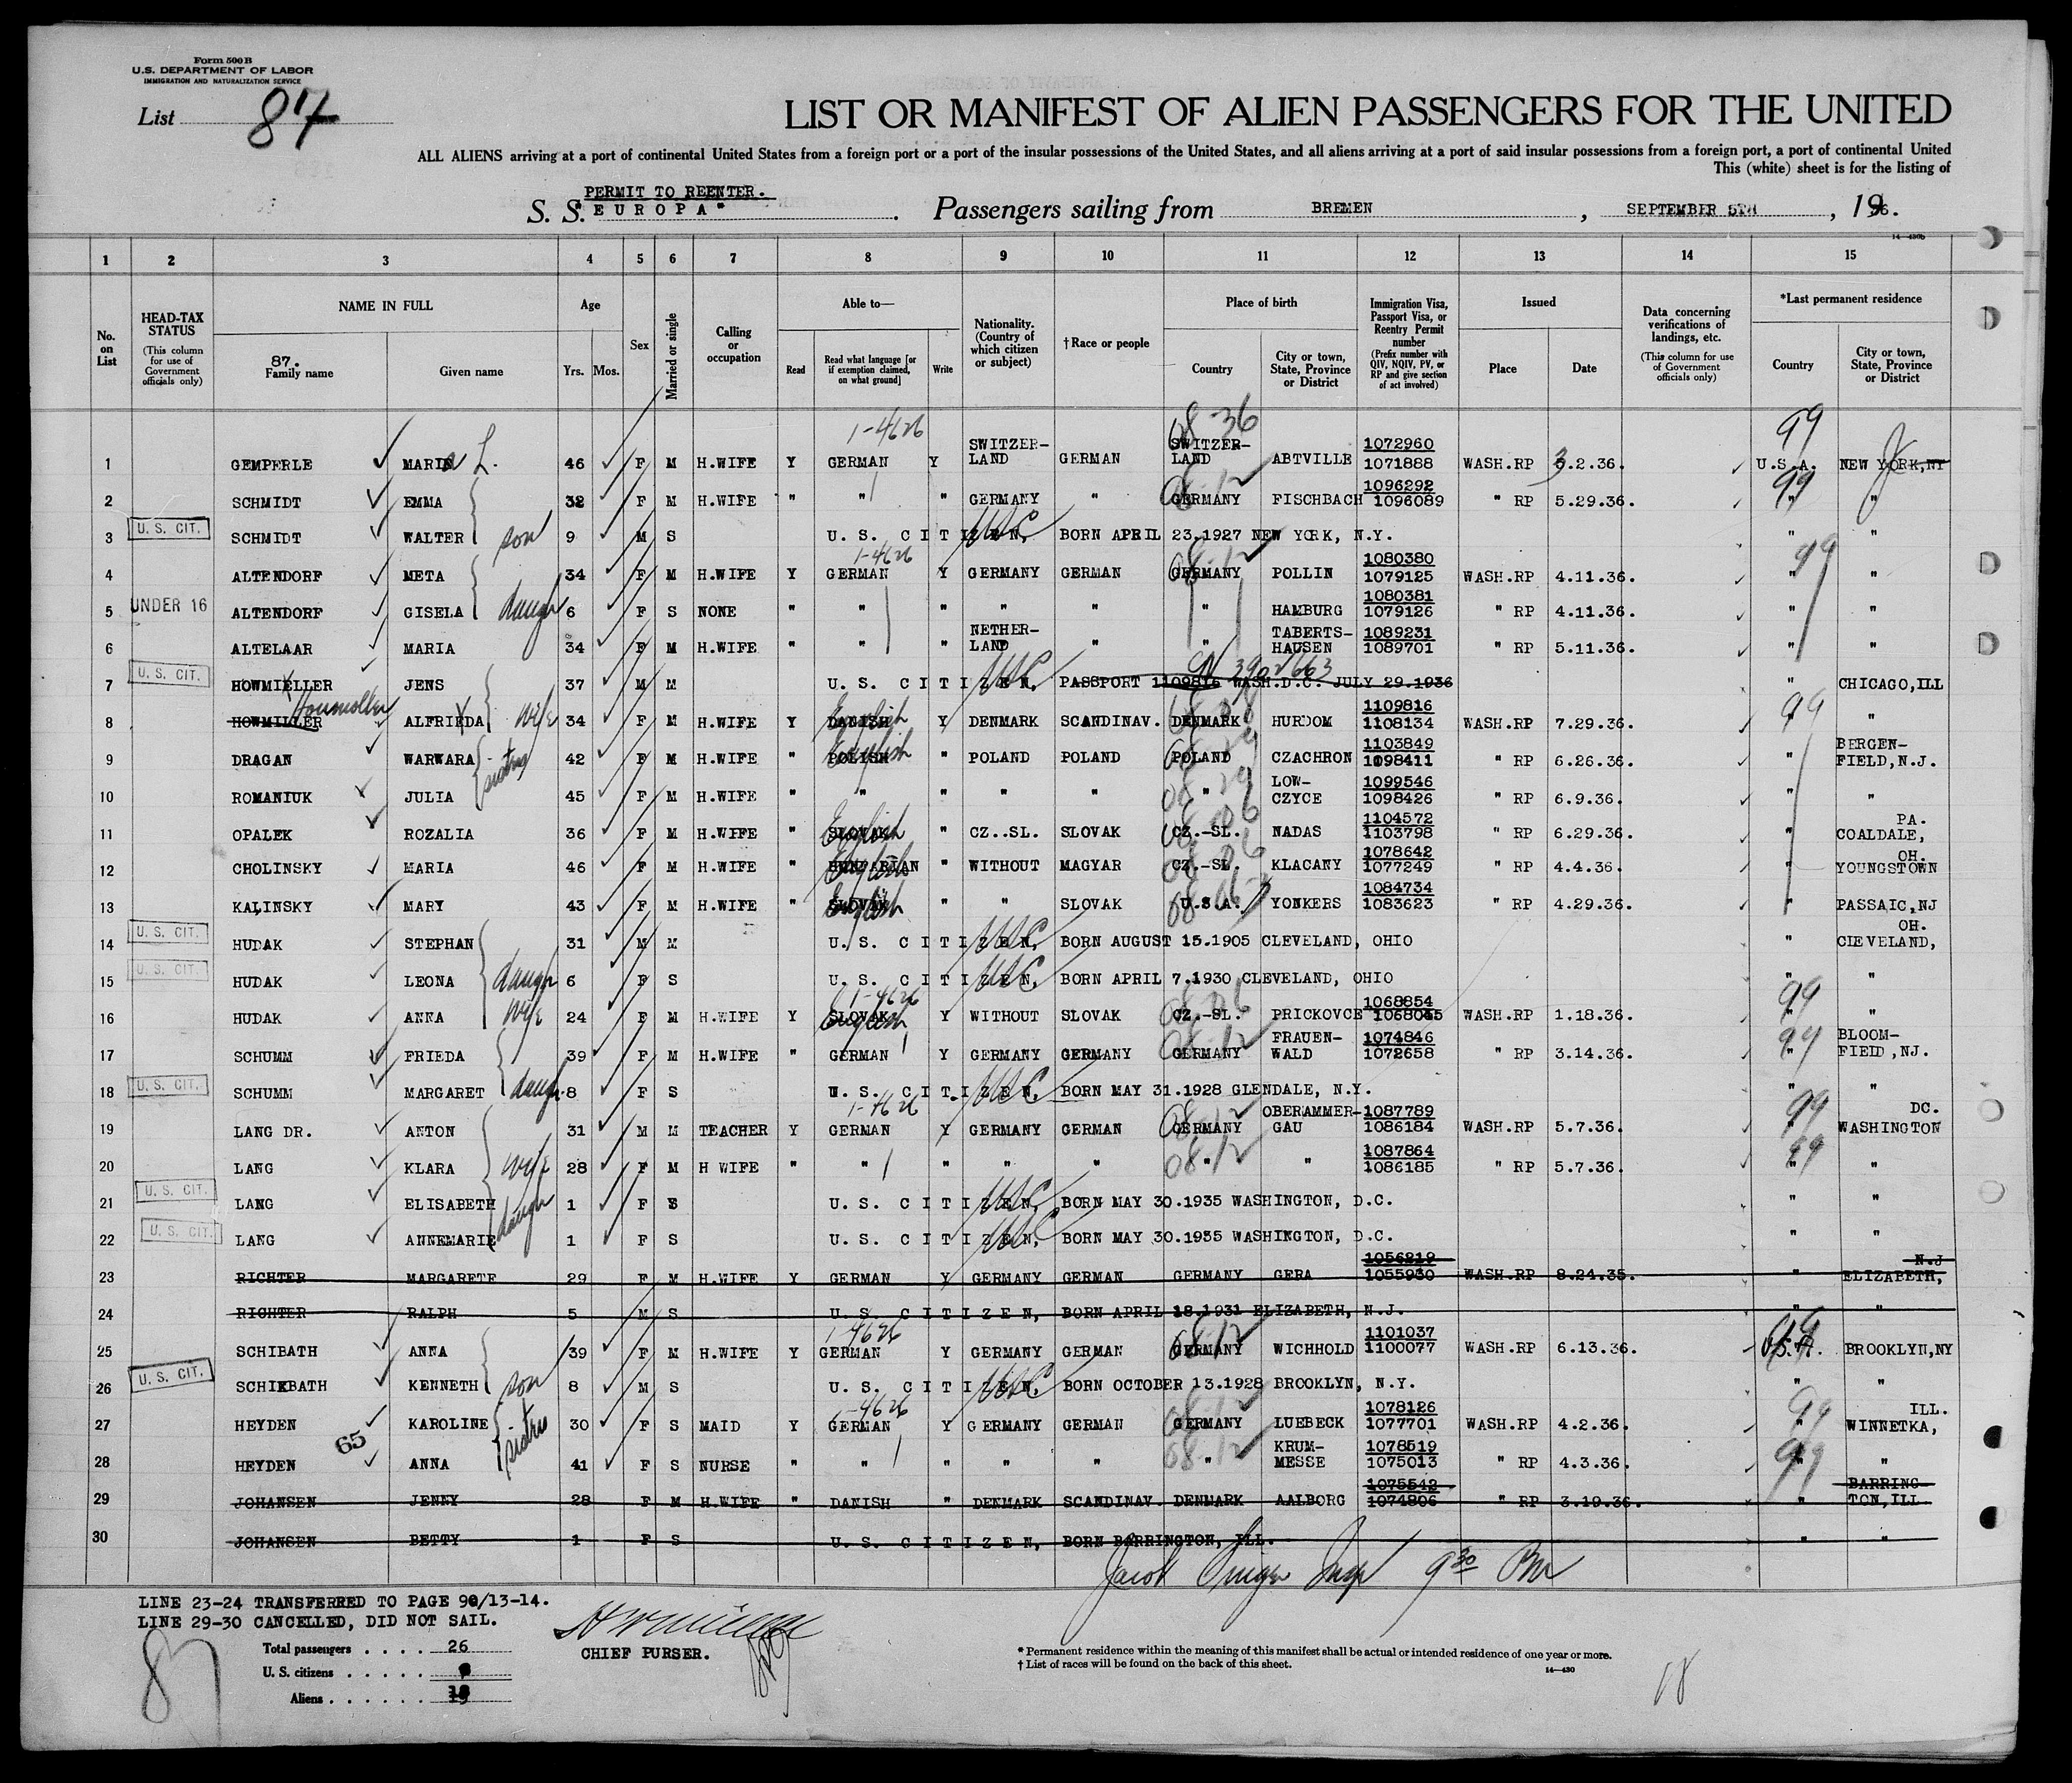 Form 500 B
U.S. DEPARTMENT OF LABOR
IMMIGRATION AND NATURALIZATION SERVICE
List 87
LIST OR MANIFEST OF ALIEN PASSENGERS FOR THE UNITED
ALL ALIENS arriving at a port of continental United States from a foreign port or a port of the insular possessions of the United States, and all aliens arriving at a port of said insular possessions from a foreign port, a port of continental United
This (white) sheet is for the listing of
PERMIT TO REENTER.
S. S. "EUROPA" . Passengers sailing from BREMEN , SEPTEMBER 5TH , 1936.
14—430b
1 2 3 4 5 6 7 8 9 10 11 12 13 14 15
No. on List
HEAD-TAX STATUS (This column for use of Government officials only)
NAME IN FULL
87.
Family name Given name
Age Yrs. Mos.
Sex
Married or single
Calling or occupation
Able to— Read Read what language [or if exemption claimed, on what ground] Write
Nationality. (Country of which citizen or subject)
†Race or people
Place of birth Country City or town, State, Province or District
Immigration Visa, Passport Visa, or Reentry Permit number (Prefix number with QIV, NQIV, PV, or RP and give section of act involved)
Issued Place Date
Data concerning verifications of landings, etc. (This column for use of Government officials only)
*Last permanent residence Country City or town, State, Province or District
1-4626 08-36 99
1 GEMPERLE MARIA L. 46 F M H.WIFE Y GERMAN Y SWITZER-LAND GERMAN SWITZER-LAND ABTVILLE 1072960 1071888 WASH.RP 3.2.36. U.S.A. NEW YORK,NY
2 SCHMIDT EMMA 32 F M H.WIFE " " " GERMANY " GERMANY 08-12 FISCHBACH 1096292 1096089 " RP 5.29.36. 99 " "
U. S. CIT.
3 SCHMIDT WALTER son 9 M S U. S. CITIZEN, USC BORN APRIL 23.1927 NEW YORK, N.Y. " "
1-4626 08-12 99
4 ALTENDORF META 34 F M H.WIFE Y GERMAN Y GERMANY GERMAN GERMANY POLLIN 1080380 1079125 WASH.RP 4.11.36. " "
UNDER 16
5 ALTENDORF GISELA daugh 6 F S NONE " " " " " " HAMBURG 1080381 1079126 " RP 4.11.36. " "
6 ALTELAAR MARIA 34 F M H.WIFE " " " NETHER-LAND " " TABERTS-HAUSEN 1089231 1089701 " RP 5.11.36. " "
U. S. CIT.
7 HOWMIELLER JENS 37 M M U. S. CITIZEN, USC PASSPORT 1109816 WASH.D.C. JULY 29.1936 " CHICAGO,ILL
8 HOWMILLER Houmoller ALFRIEDA wife 34 F M H.WIFE Y DANISH English Y DENMARK SCANDINAV. DENMARK HURDOM 1109816 1108134 WASH.RP 7.29.36. 99 " "
9 DRAGAN WARWARA sisters 42 F M H.WIFE " POLISH English " POLAND POLAND POLAND CZACHRON 1103849 1098411 " RP 6.26.36. " BERGEN-FIELD,N.J.
10 ROMANIUK JULIA 45 F M H.WIFE " " " " " " LOW-CZYCE 1099546 1098426 " RP 6.9.36. " "
11 OPALEK ROZALIA 36 F M H.WIFE " SLOVAK English " CZ..SL. SLOVAK CZ.-SL. NADAS 1104572 1103798 " RP 6.29.36. " PA. COALDALE,
12 CHOLINSKY MARIA 46 F M H.WIFE " HUNGARIAN English " WITHOUT MAGYAR CZ.-SL. KLACANY 1078642 1077249 " RP 4.4.36. " OH. YOUNGSTOWN
13 KALINSKY MARY 43 F M H.WIFE " SLOVAK English " " SLOVAK U.S.A. YONKERS 1084734 1083623 " RP 4.29.36. " PASSAIC,NJ
U. S. CIT.
14 HUDAK STEPHAN 31 M M U. S. CITIZEN, USC BORN AUGUST 15.1905 CLEVELAND, OHIO " OH. CLEVELAND,
U. S. CIT.
15 HUDAK LEONA daugh 6 F S U. S. CITIZEN, USC BORN APRIL 7.1930 CLEVELAND, OHIO " "
1-4626 08-06 99
16 HUDAK ANNA wife 24 F M H.WIFE Y SLOVAK English Y WITHOUT SLOVAK CZ.-SL. PRICKOVCE 1068854 1068045 WASH.RP 1.18.36. " "
17 SCHUMM FRIEDA 39 F M H.WIFE " GERMAN Y GERMANY GERMANY GERMANY 08-12 FRAUEN-WALD 1074846 1072658 " RP 3.14.36. 99 " BLOOM-FIELD,NJ.
U. S. CIT.
18 SCHUMM MARGARET daugh. 8 F S U. S. CITIZEN, USC BORN MAY 31.1928 GLENDALE, N.Y. " "
1-4626 08-12 99
19 LANG DR. ANTON 31 M M TEACHER Y GERMAN Y GERMANY GERMAN GERMANY OBERAMMER-GAU 1087789 1086184 WASH.RP 5.7.36. " DC. WASHINGTON
20 LANG KLARA wife 28 F M H WIFE " " " " " " 08-12 " 1087864 1086185 " RP 5.7.36. 99 " "
U. S. CIT.
21 LANG ELISABETH daugh 1 F S U. S. CITIZEN, USC BORN MAY 30.1935 WASHINGTON, D.C. " "
U. S. CIT.
22 LANG ANNEMARIE 1 F S U. S. CITIZEN, USC BORN MAY 30.1935 WASHINGTON, D.C. " "
23 RICHTER MARGARETE 29 F M H.WIFE Y GERMAN Y GERMANY GERMAN GERMANY GERA 1056219 1055930 WASH.RP 8.24.35. " N.J ELIZABETH,
24 RICHTER RALPH 5 M S U. S. CITIZEN, BORN APRIL 18.1931 ELIZABETH, N.J. " "
1-4626 08-12 99
25 SCHIBATH ANNA 39 F M H.WIFE Y GERMAN Y GERMANY GERMAN GERMANY WICHHOLD 1101037 1100077 WASH.RP 6.13.36. U.S.A. BROOKLYN,NY
U. S. CIT.
26 SCHIKBATH KENNETH son 8 M S U. S. CITIZEN, USC BORN OCTOBER 13.1928 BROOKLYN, N.Y. " "
1-4626 08-12 99
27 HEYDEN KAROLINE sisters 30 F S MAID Y GERMAN Y GERMANY GERMAN GERMANY LUEBECK 1078126 1077701 WASH.RP 4.2.36. " ILL. WINNETKA,
65
28 HEYDEN ANNA 41 F S NURSE " " " " " " 08-12 KRUM-MESSE 1078519 1075013 " RP 4.3.36. 99 " "
29 JOHANSEN JENNY 28 F M H.WIFE " DANISH " DENMARK SCANDINAV. DENMARK AALBORG 1075542 1074806 " RP 3.19.36. " BARRING-TON,ILL
30 JOHANSEN BETTY 1 F S U. S. CITIZEN, BORN BARRINGTON, ILL. " "
Jacob Insp 9 30 PM
LINE 23-24 TRANSFERRED TO PAGE 90/13-14.
LINE 29-30 CANCELLED, DID NOT SAIL.
87
Total passengers . . . . 26
U. S. citizens . . . . .
Aliens . . . . . .
CHIEF PURSER.
* Permanent residence within the meaning of this manifest shall be actual or intended residence of one year or more.
† List of races will be found on the back of this sheet.
14—430
18